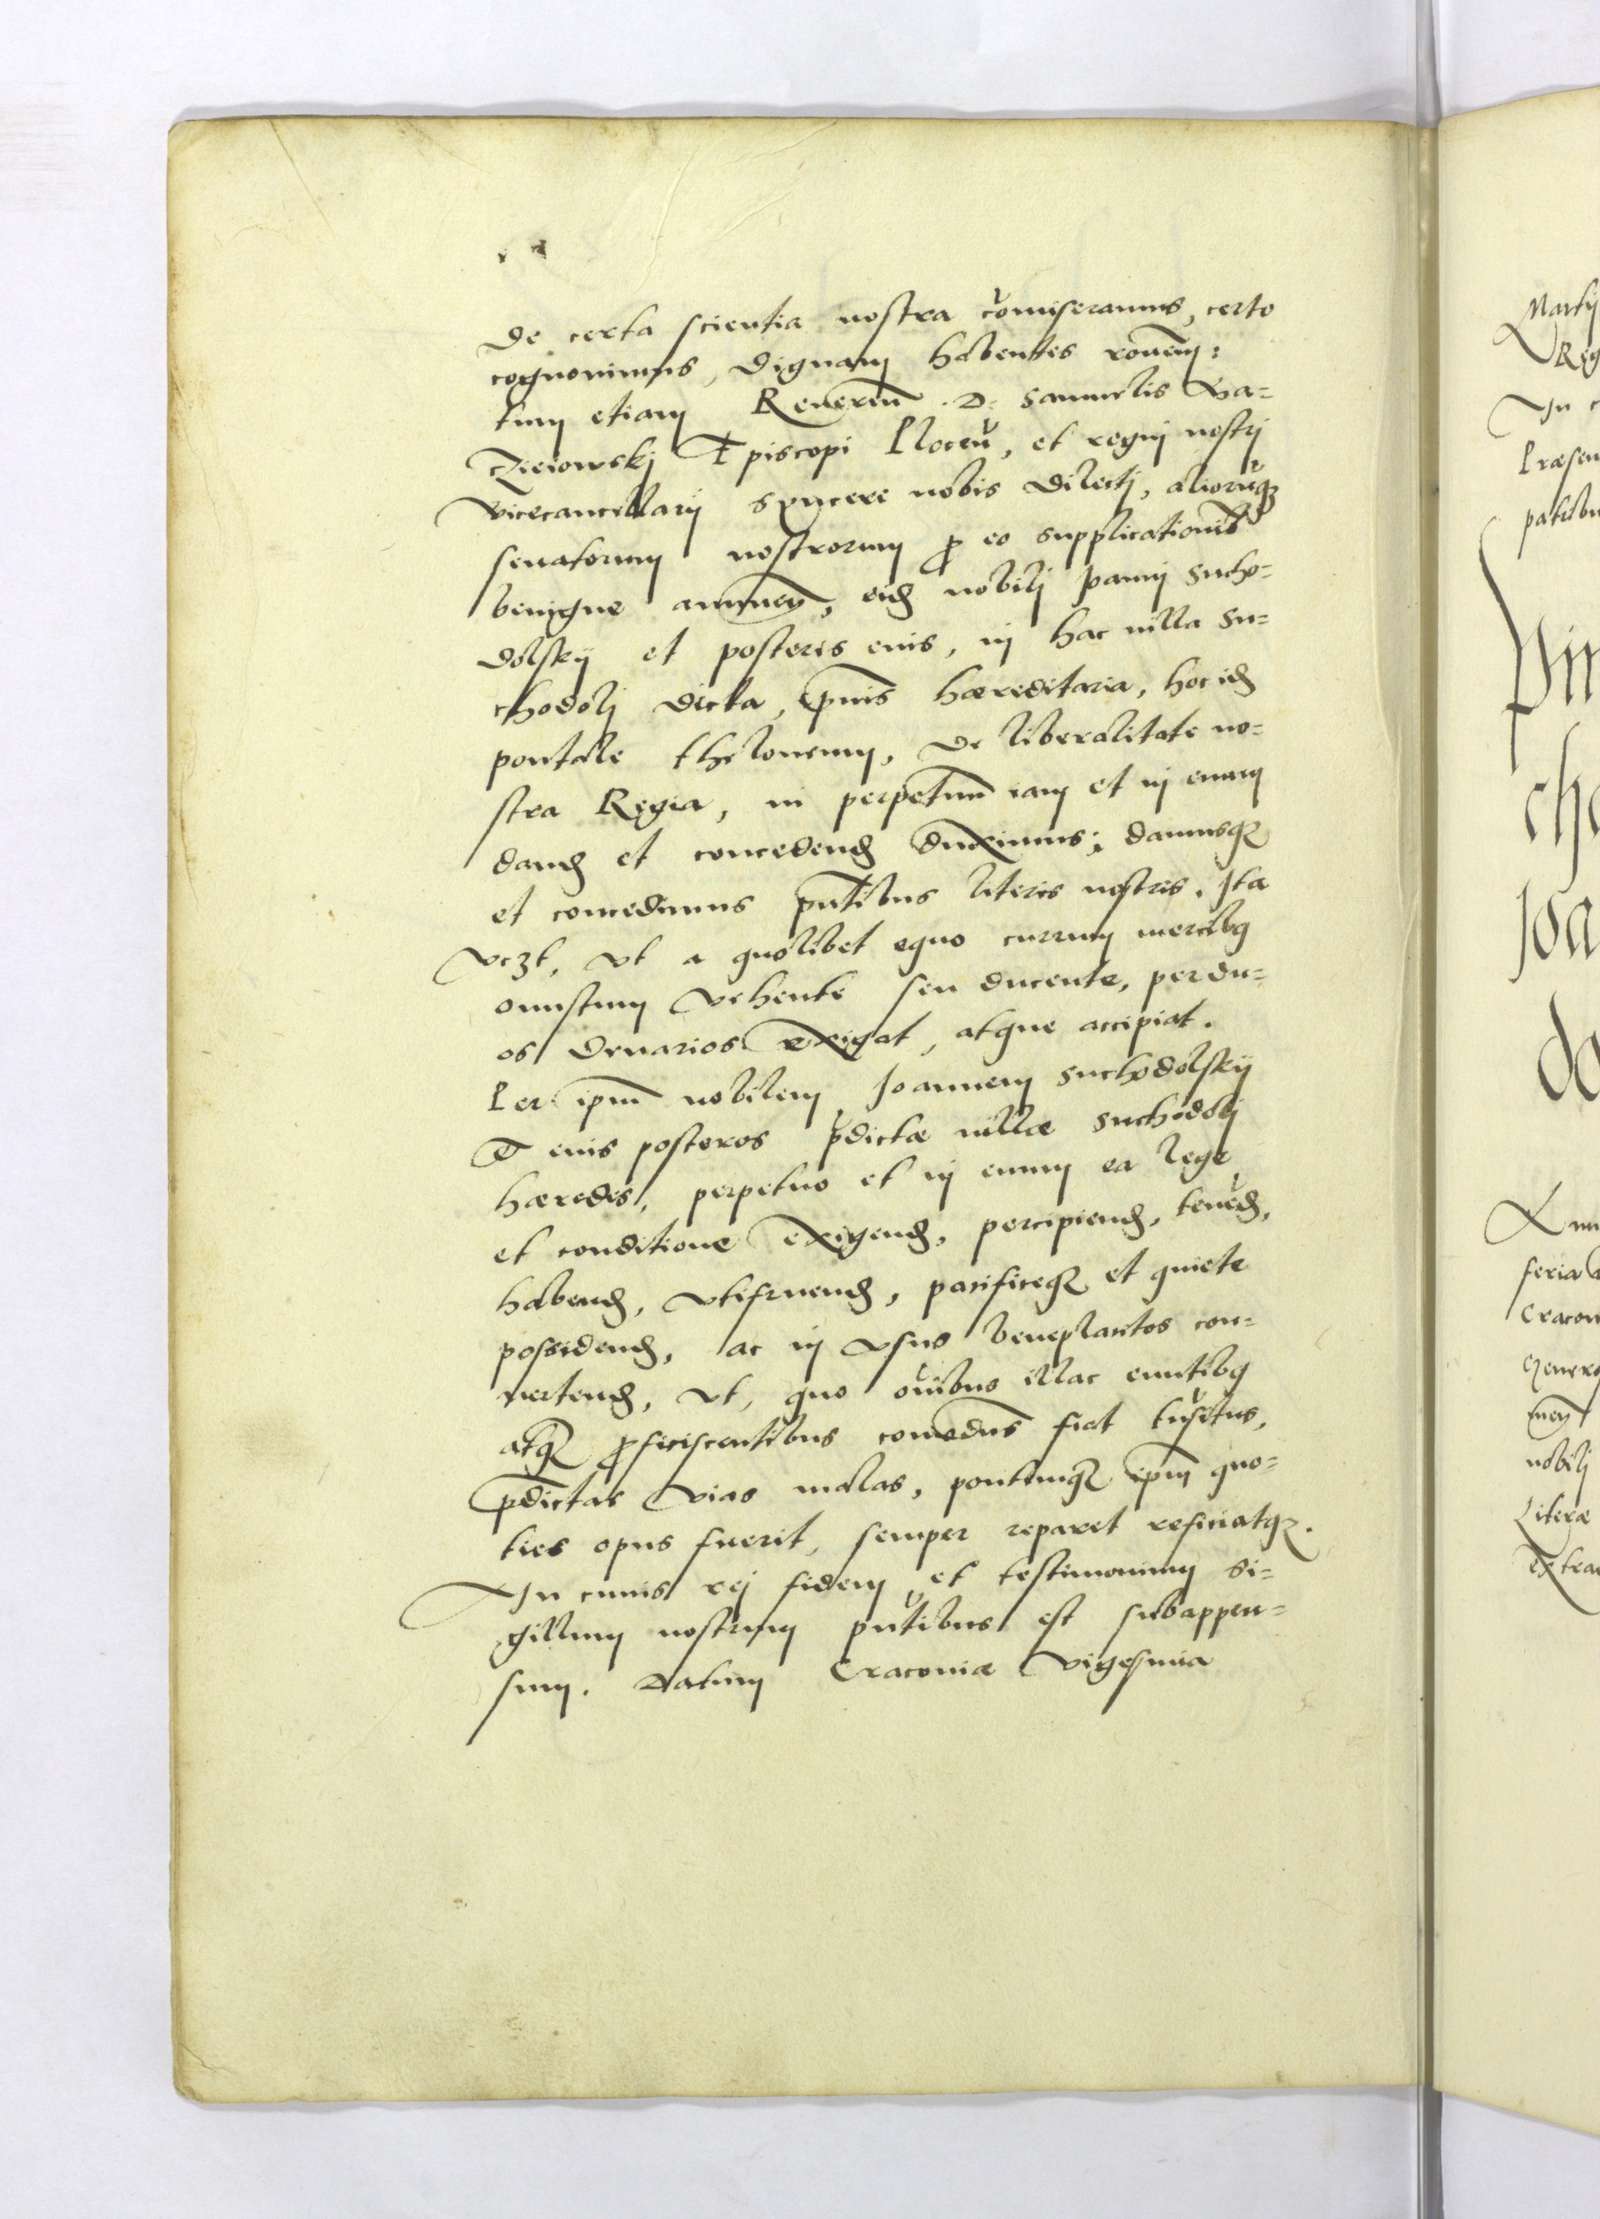 de certa scientia nostra com̃iseramus, certo
cognouimus, dignam habentes rõnem:
tum etiam Reuerẽm D. Samuelis Ma-
czieiowskj Episcopi Ploceñ, et regnj nostrj
vicecancellarij syncere nobis dilectj, aliorũqȝ
senatorum nostrorum ꝓ eo supplicationib̃
benigne annueñ, eid̃ nobilj Joannj Sucho-
dolskij et posteris eius, in hac villa Su-
chodolj dicta, ip̃ius hæreditaria, hoc id̃
pontale theloneum, de liberalitate no-
stra Regia, in perpetuũ iam et in euum
dand̃ et concedend̃ duximus; damusqȝ
et concedimus pñtibus literis nostris. Ita
vcȝt, vt a quolibet equo currum mercibꝗ
onustum vehente seu ducente, per du-
os denarios exigat, atque accipiat.
Per ip̃m nobilem Joannem Suchodolskij
et eius posteros p̃dictæ villæ Suchodolj
hæredes, perpetuo et in euum ea lege
et conditione exigend̃, percipiend̃, teneñd̃,
habend̃, vtifruend̃, pacificeqȝ et quiete
possidend̃, ac in vsus beneplacitos con-
uertend̃, vt, quo oĩbus illac euntibꝗ
atqȝ ꝓficiscentibus com̃odus fiat trãsitus,
p̃dictas vias malas, pontemqȝ ip̃m quo-
ties opus fuerit, semper reparet reficiatqȝ.
In cuius rej fidem et testimonium si-
gillum nostrum pñtibus est subappen-
sum. Datum Cracouiæ vigesima
Martij
Reg
In c
Præsen
patibu
Pin
cho
Joa
do
feria
Cracou
nobilj
Literæ
extra